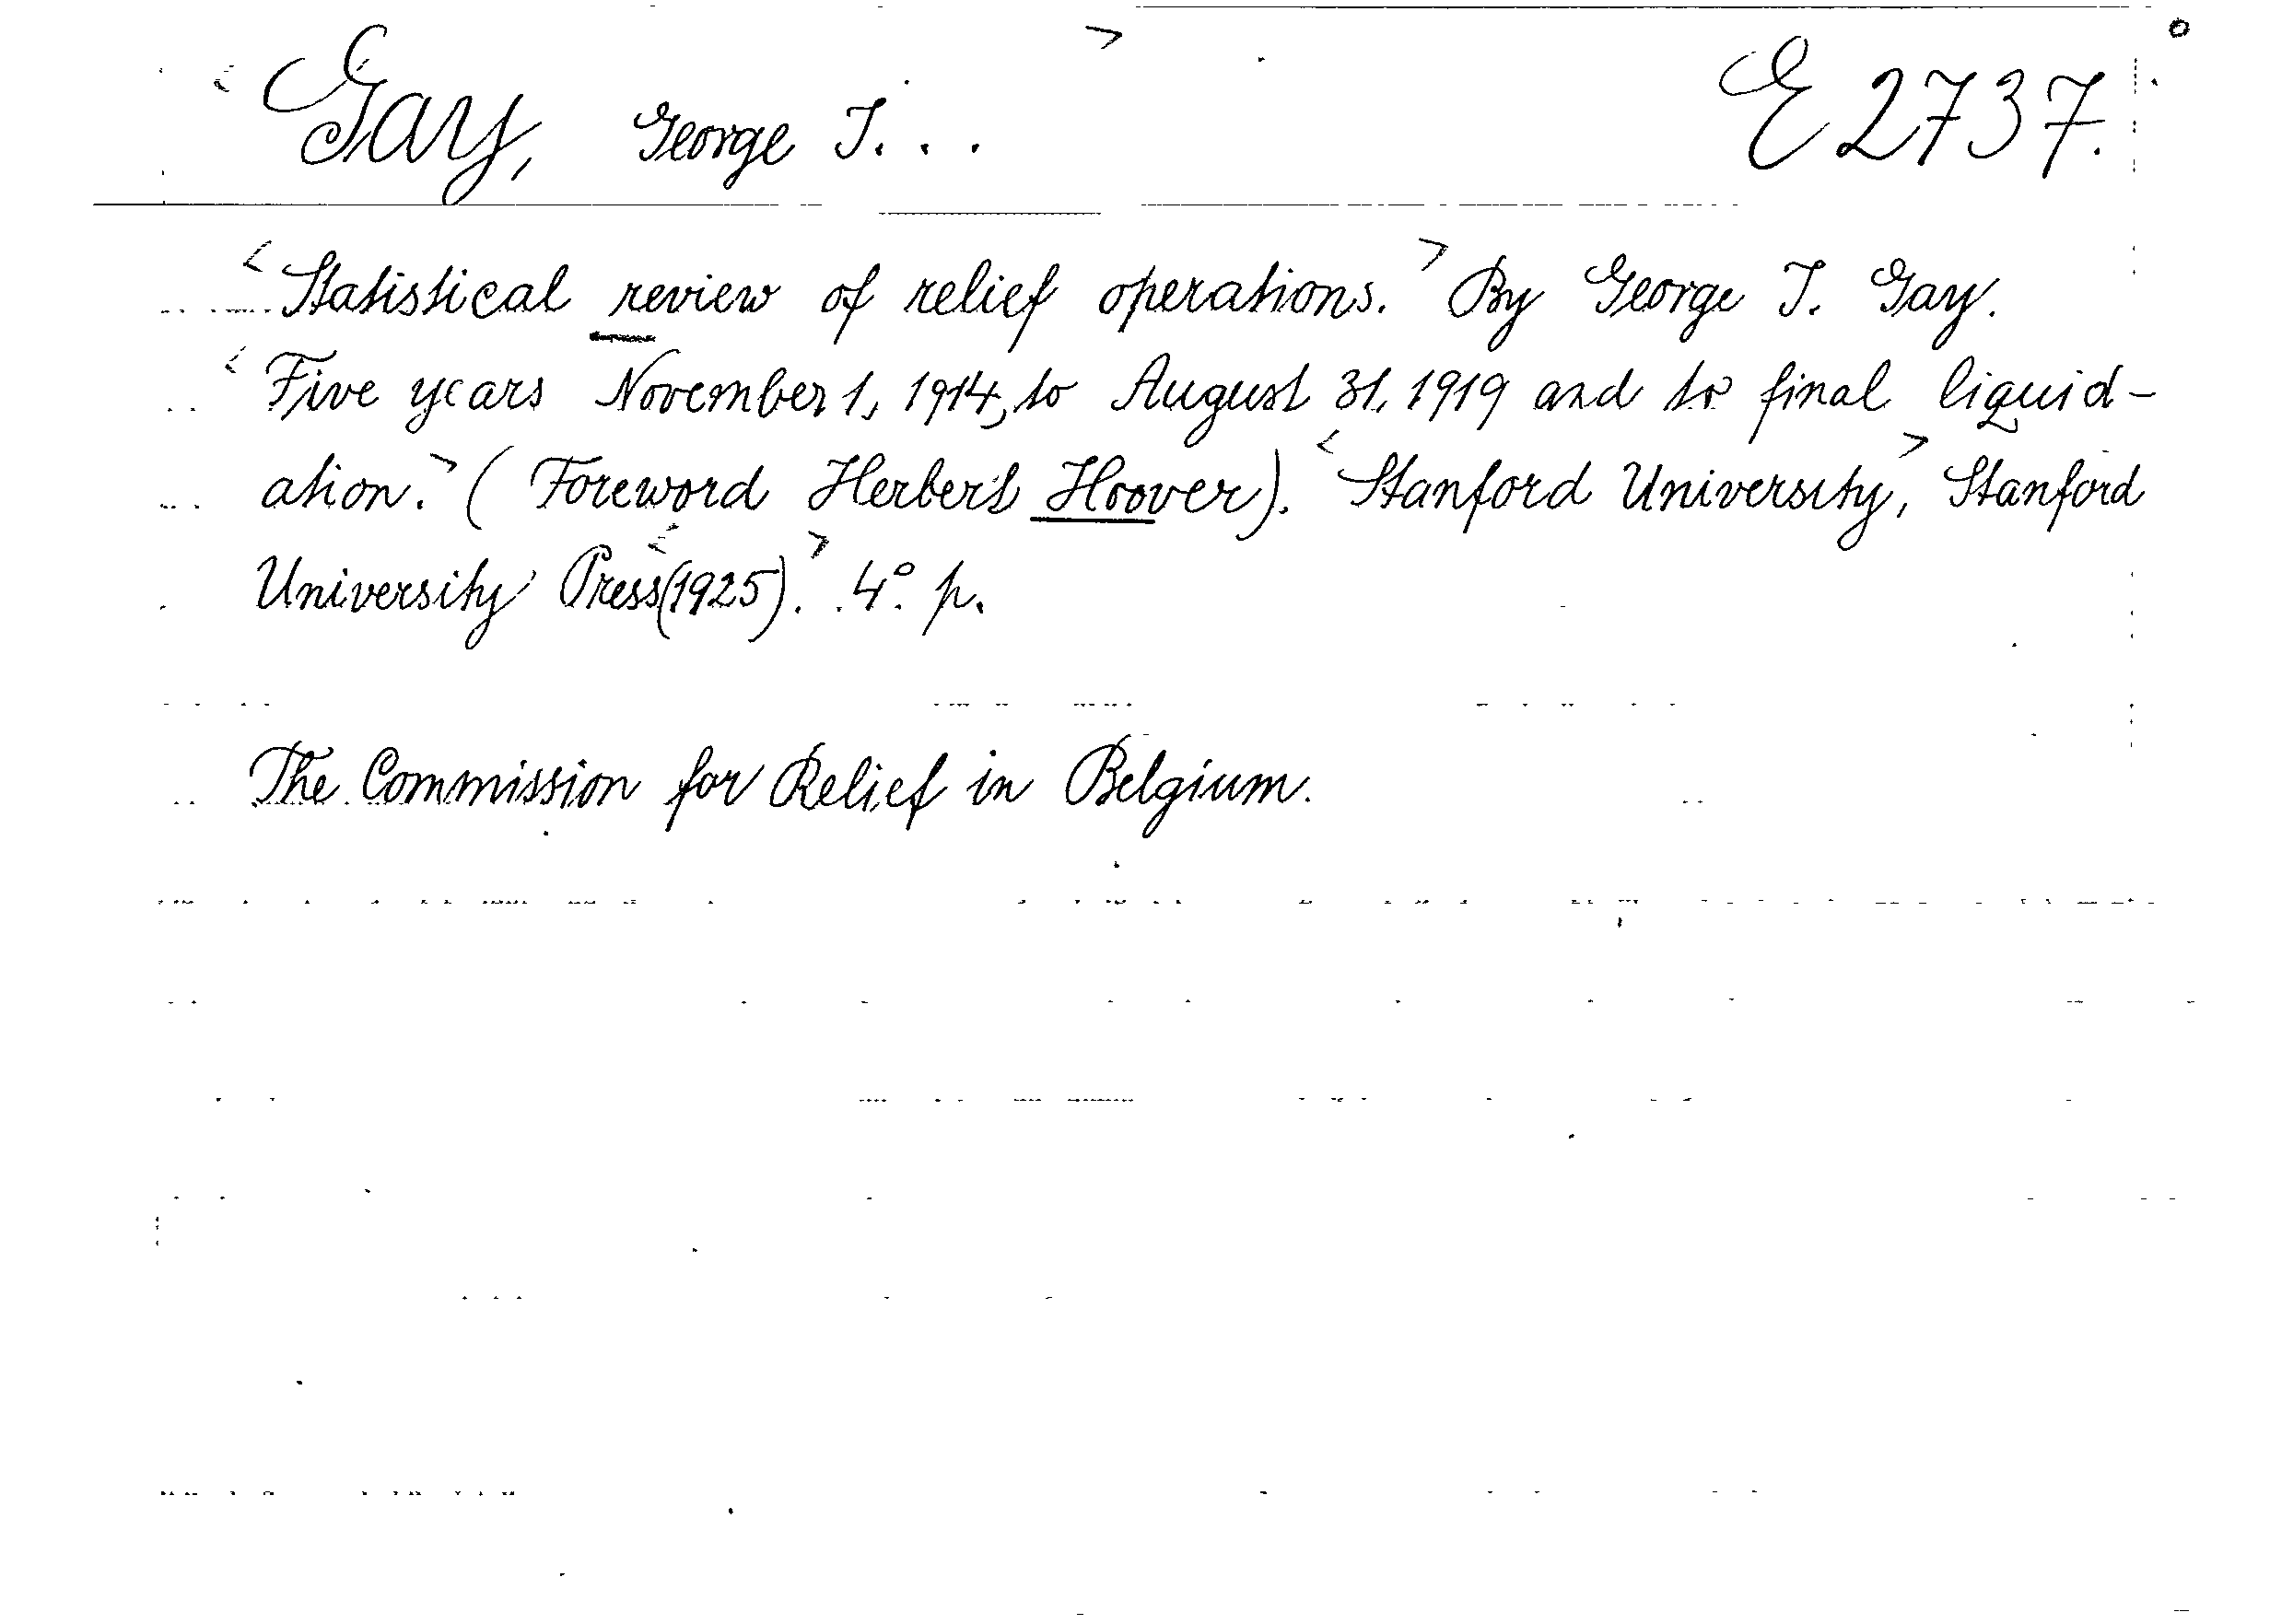 < Gay, George I. . . > E 2737.
< Statistical review of relief operations. > By George I. Gay.
< Five years November 1, 1914, to August 31, 1919 and to final liquid-
ation. > ( Foreword Herbert Hoover). < Stanford University, > Stanford
University Press < (1925). > 4° p.
The Commission for Relief in Belgium.